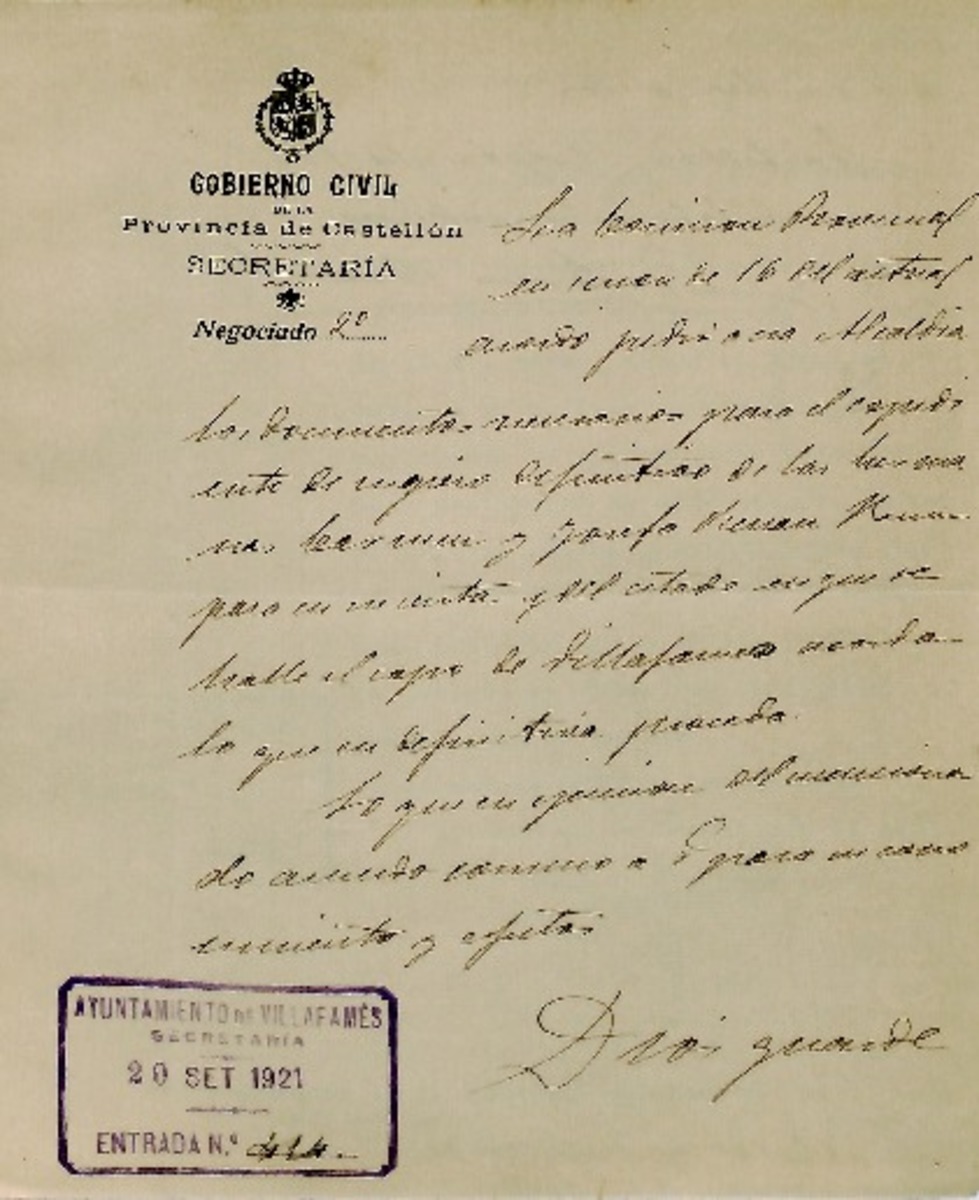 GOBIERNO CIVIL
DE LA
Provincia de Castellón
SECRETARÍA
Negociado 2º
La Comision Provincial
en sesion de 16 del actual
acordó pedir a esa Alcaldia
los documentos necesarios para el expedi
ente de ingreso definitivo de las herma
nas Carmen y Josefa
para en su vista y del estado en que se
halle el cupo de Villafames acorda
lo que en definitiva proceda.
Lo que en ejecucion del menciona
do acuerdo comunico a V para su cono
cimiento y efectos
Dios guarde
AYUNTAMIENTO DE VILLAFAMÉS
SECRETARÍA
20 SET 1921
ENTRADA N.º 414.